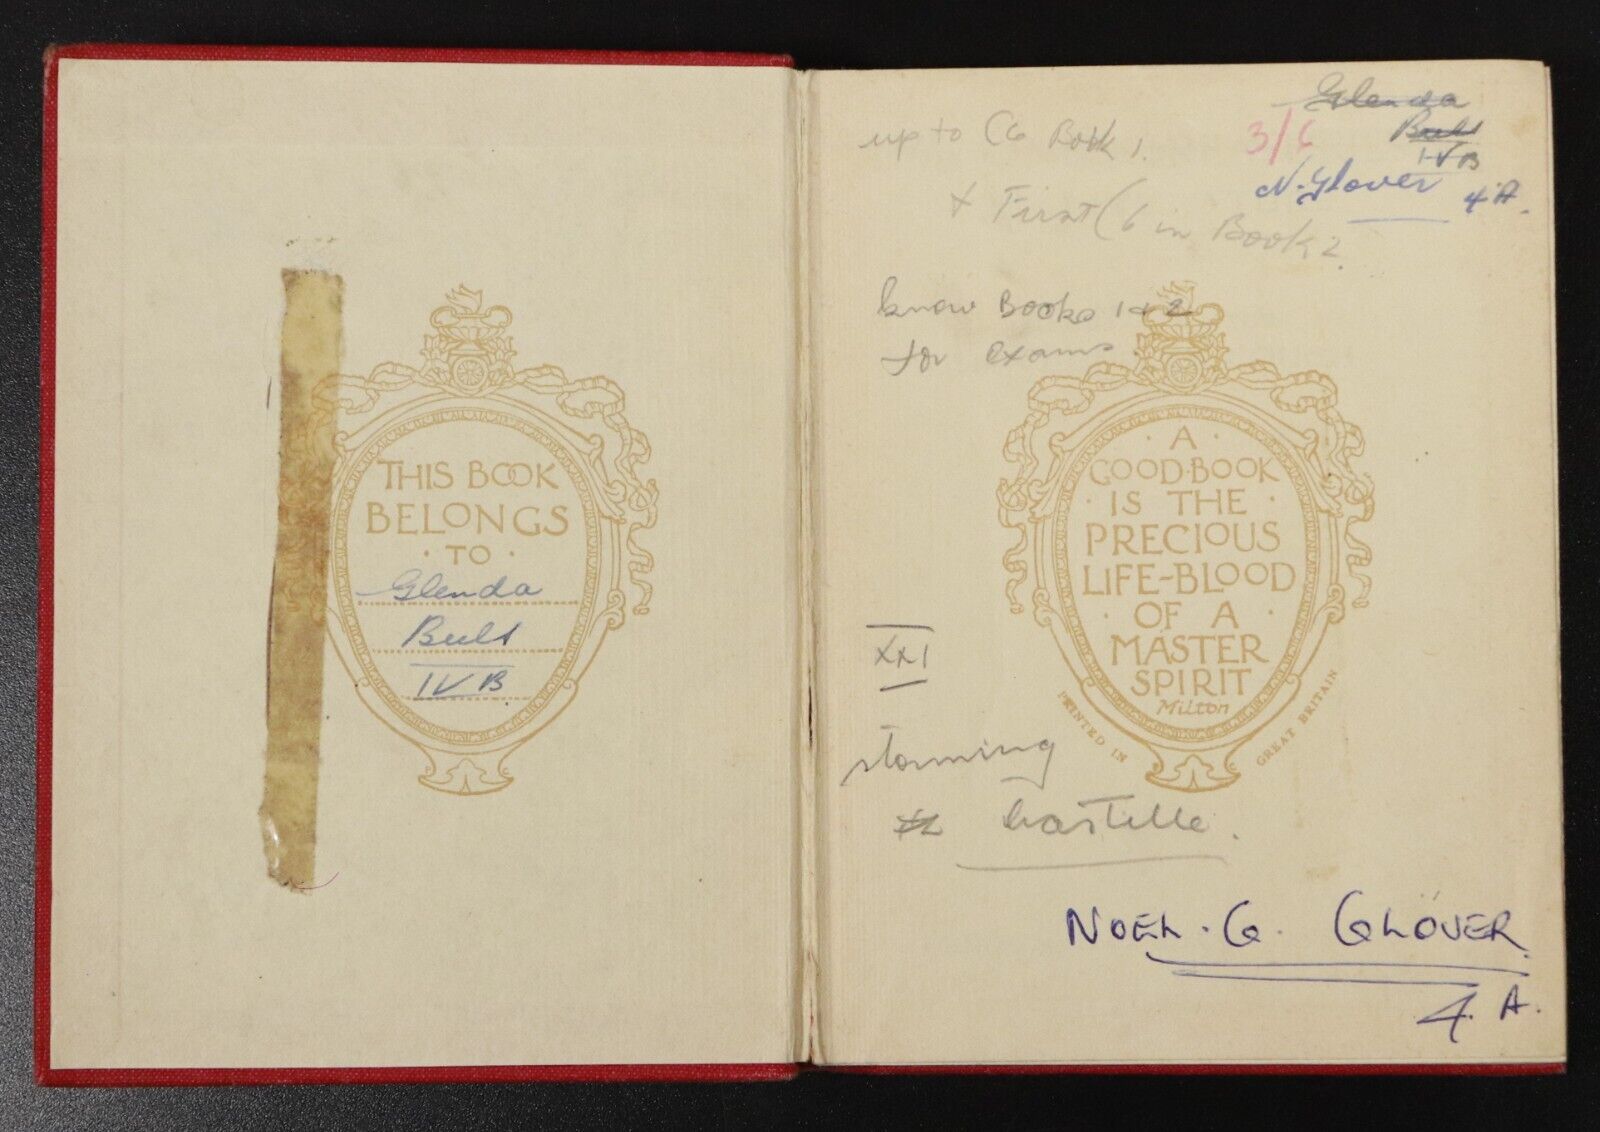 THIS BOOK
BELONGS
· TO ·
Glenda
Buls
IV B
Glenda
Buls
IV B
3/6
N. Glover 4 A.
up to C6 Book 1.
+ First C6 in Book 2.
know Books 1 & 2
for exams
· A ·
GOOD·BOOK
· IS THE ·
PRECIOUS
LIFE-BLOOD
· OF A ·
MASTER
SPIRIT
Milton
PRINTED IN GREAT BRITAIN
XXI
storming
bastille.
NOEL. G. GLOVER.
4. A.